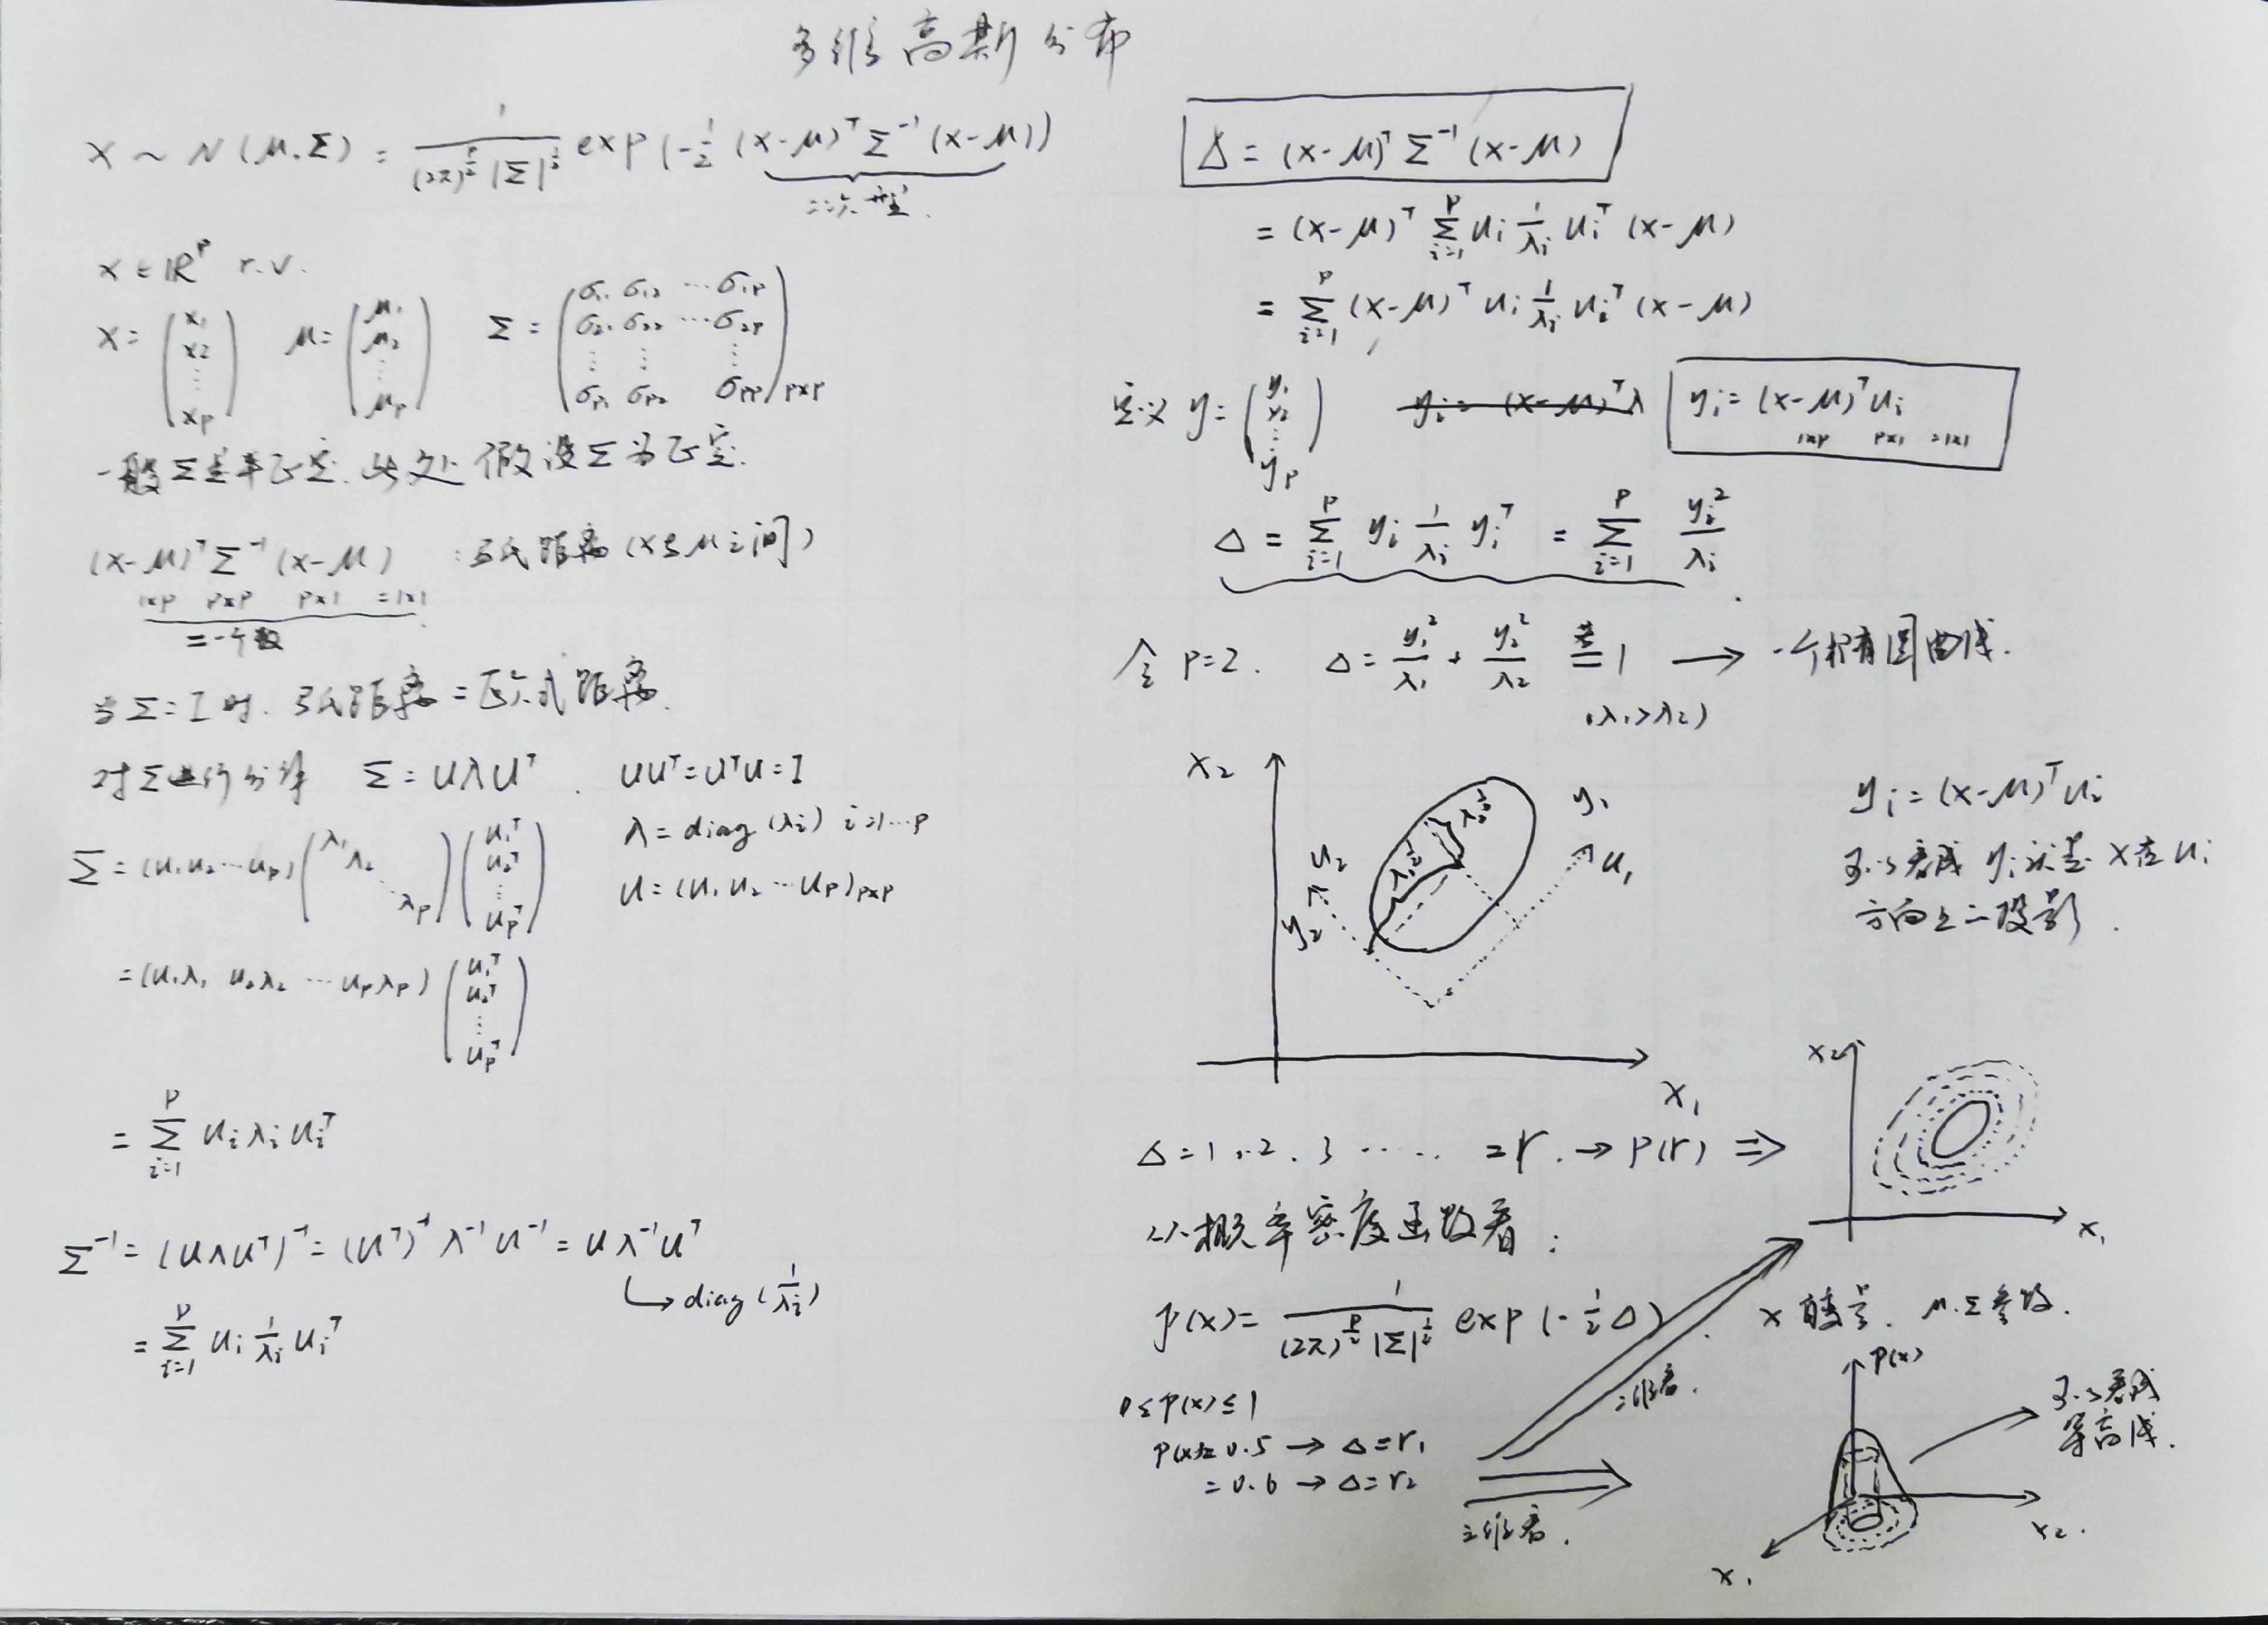 多维高斯分布
x ~ N(μ.Σ) = 1/((2π)^(p/2) |Σ|^(1/2)) exp(-1/2 (x-μ)ᵀ Σ⁻¹ (x-μ))
二次型.
x ∈ ℝᵖ r.v.
x = (x₁ x₂ ⋮ xp) μ = (μ₁ μ₂ ⋮ μp) Σ = (σ₁₁ σ₁₂ ⋯ σ₁p σ₂₁ σ₂₂ ⋯ σ₂p ⋮ ⋮ ⋮ σp₁ σp₂ σpp)p×p
一般Σ是半正定.此处假设Σ为正定.
(x-μ)ᵀ Σ⁻¹ (x-μ) :马氏距离(x与μ之间)
1×p p×p p×1 =1×1
=一个数
当Σ=I时.马氏距离=欧式距离.
对Σ进行分解 Σ=UΛUᵀ. UUᵀ=UᵀU=I
Λ=diag(λi) i=1⋯p
U=(u₁ u₂ ⋯ up)p×p
Σ=(u₁ u₂ ⋯ up)(λ₁ λ₂ ⋱ λp)(u₁ᵀ u₂ᵀ ⋮ upᵀ)
=(u₁λ₁ u₂λ₂ ⋯ upλp)(u₁ᵀ u₂ᵀ ⋮ upᵀ)
= Σ_{i=1}^{p} ui λi uiᵀ
Σ⁻¹=(UΛUᵀ)⁻¹=(Uᵀ)⁻¹Λ⁻¹U⁻¹=UΛ⁻¹Uᵀ
↳ diag(1/λi)
= Σ_{i=1}^{p} ui 1/λi uiᵀ
Δ=(x-μ)ᵀ Σ⁻¹ (x-μ)
=(x-μ)ᵀ Σ_{i=1}^{p} ui 1/λi uiᵀ (x-μ)
= Σ_{i=1}^{p} (x-μ)ᵀ ui 1/λi uiᵀ (x-μ)
定义 y=(y₁ y₂ ⋮ yp) yi=(x-μ)ᵀλ yi=(x-μ)ᵀui
1×p p×1 =1×1
Δ= Σ_{i=1}^{p} yi 1/λi yiᵀ = Σ_{i=1}^{p} yi²/λi
令 p=2. Δ= y₁²/λ₁ + y₂²/λ₂ 若= 1 → 一个椭圆曲线.
(λ₁>λ₂)
x₂
y₁
u₁
u₂
y₂
λ₁^(1/2)
λ₂^(1/2)
x₁
yi=(x-μ)ᵀui
可以看成 yi就是 x在ui
方向上的投影.
Δ=1,2,3⋯⋯ =r.→P(r) ⇒
x₂
x₁
从概率密度函数看:
p(x)= 1/((2π)^(p/2) |Σ|^(1/2)) exp(-1/2 Δ). x变量. μ.Σ参数.
0≤P(x)≤1
P(x)=0.5 → Δ=r₁
=0.6 → Δ=r₂
二维看.
三维看.
P(x)
x₂.
x₁
可以看成
等高线.